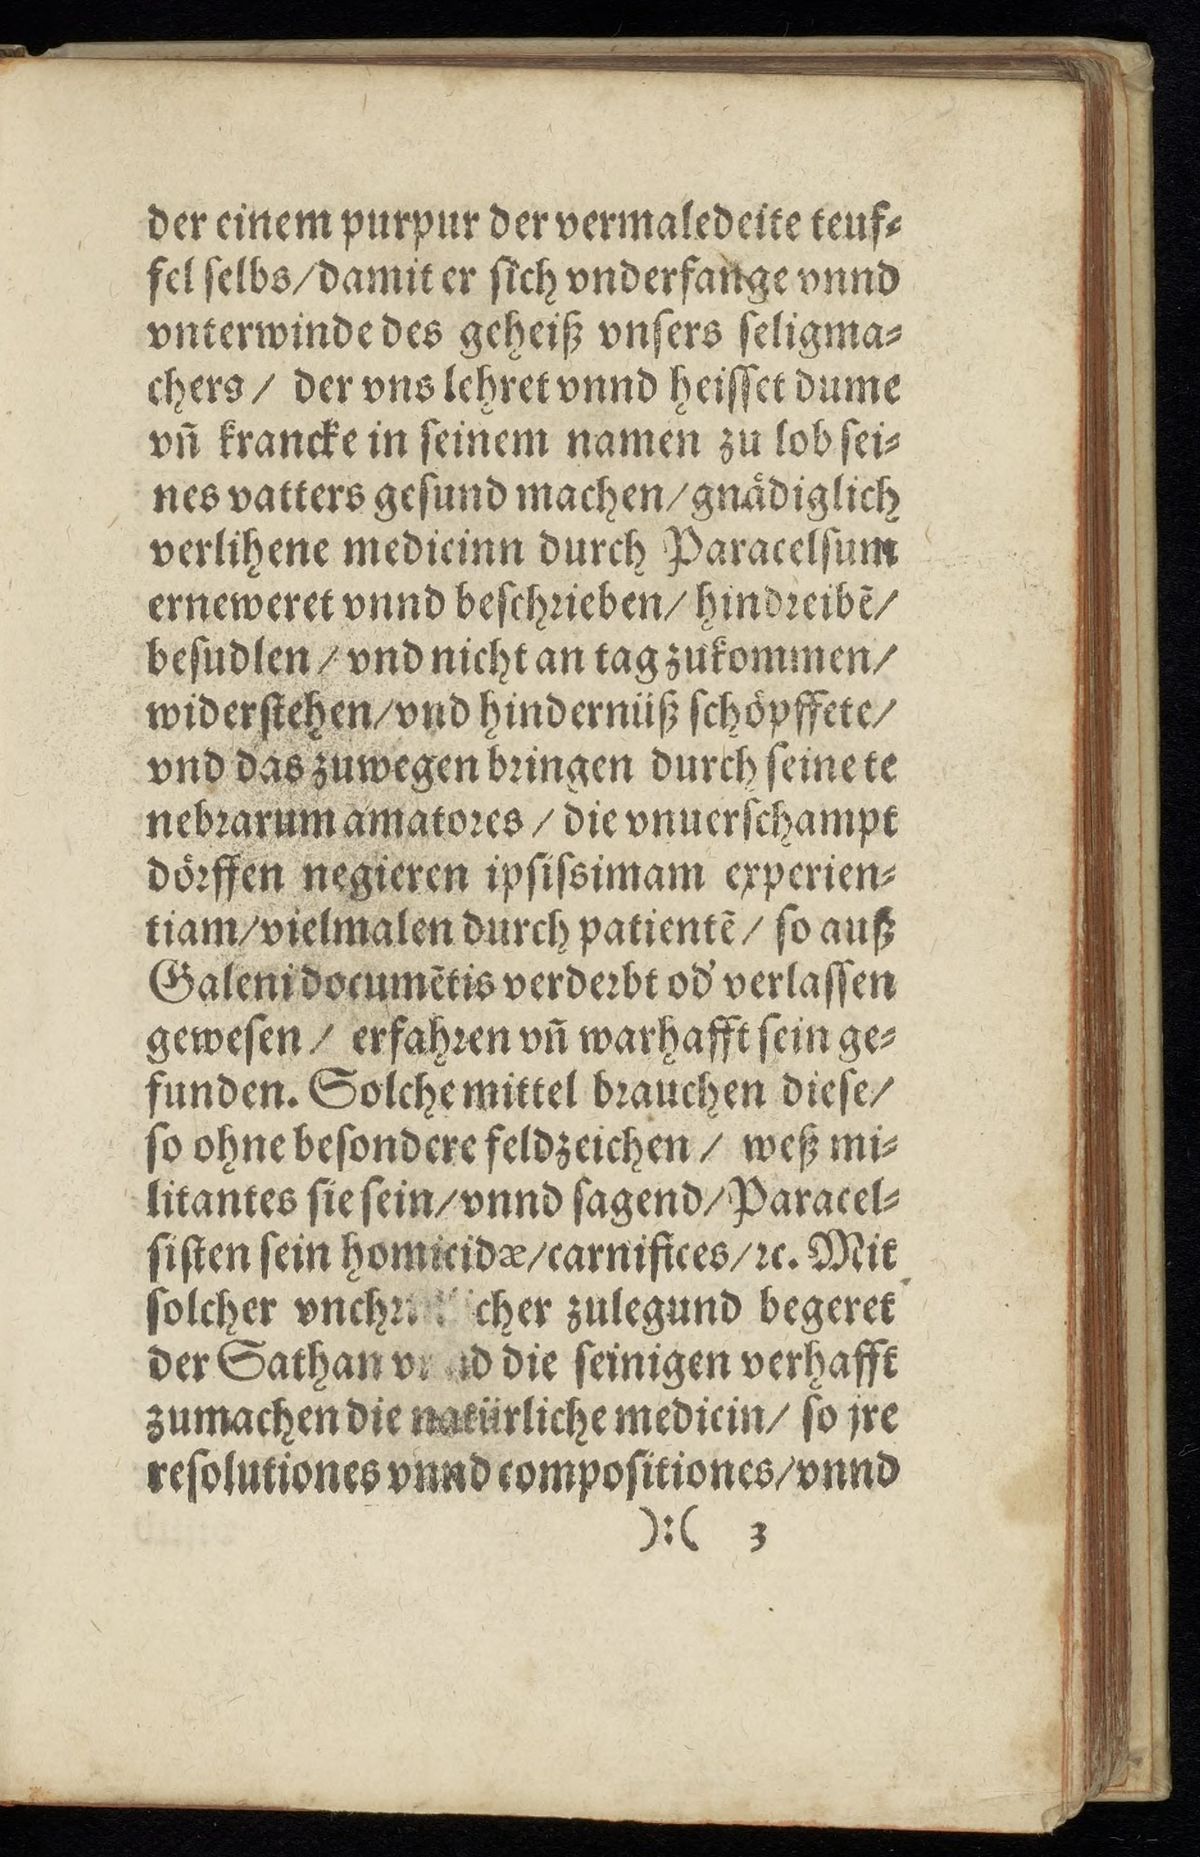 der einem purpur der vermaledeite teuf⸗
fel ſelbs/damit er ſich vnderfange vnnd
vnterwinde des geheiß vnſers ſeligma⸗
chers/ der vns lehret vnnd heiſſet dume
vñ krancke in ſeinem namen zu lob ſei⸗
nes vatters geſund machen/gnaͤdiglich
verlihene medicinn durch Paracelſum
erneweret vnnd beſchꝛieben/ hindꝛeibẽ/
beſudlen/vnd nicht an tag zukommen/
widerſtehen/vnd hindernüß ſchoͤpffete/
vnd das zuwegen bꝛingen durch ſeine te
nebꝛarum amatoꝛes/die vnuerſchampt
doͤꝛffen negieren ipſiſsimam experien⸗
tiam/vielmalen durch patientẽ/ ſo auß
Galeni documẽtis verdeꝛbt od' verlaſſen
geweſen/ erfahꝛen vñ warhafft ſein ge⸗
funden. Solche mittel bꝛauchen dieſe/
ſo ohne beſondere feldzeichen/ weß mi⸗
litantes ſie ſein/vnnd ſagend/Paracel⸗
ſiſten ſein homicidæ/carnifices/ꝛc. Mit
ſolcher zulegund begeret
der Sathan vnnd die ſeinigen verhafft
zumachen die natürliche medicin/ ſo jre
reſolutiones vnnd compoſitiones/vnnd
):( 3